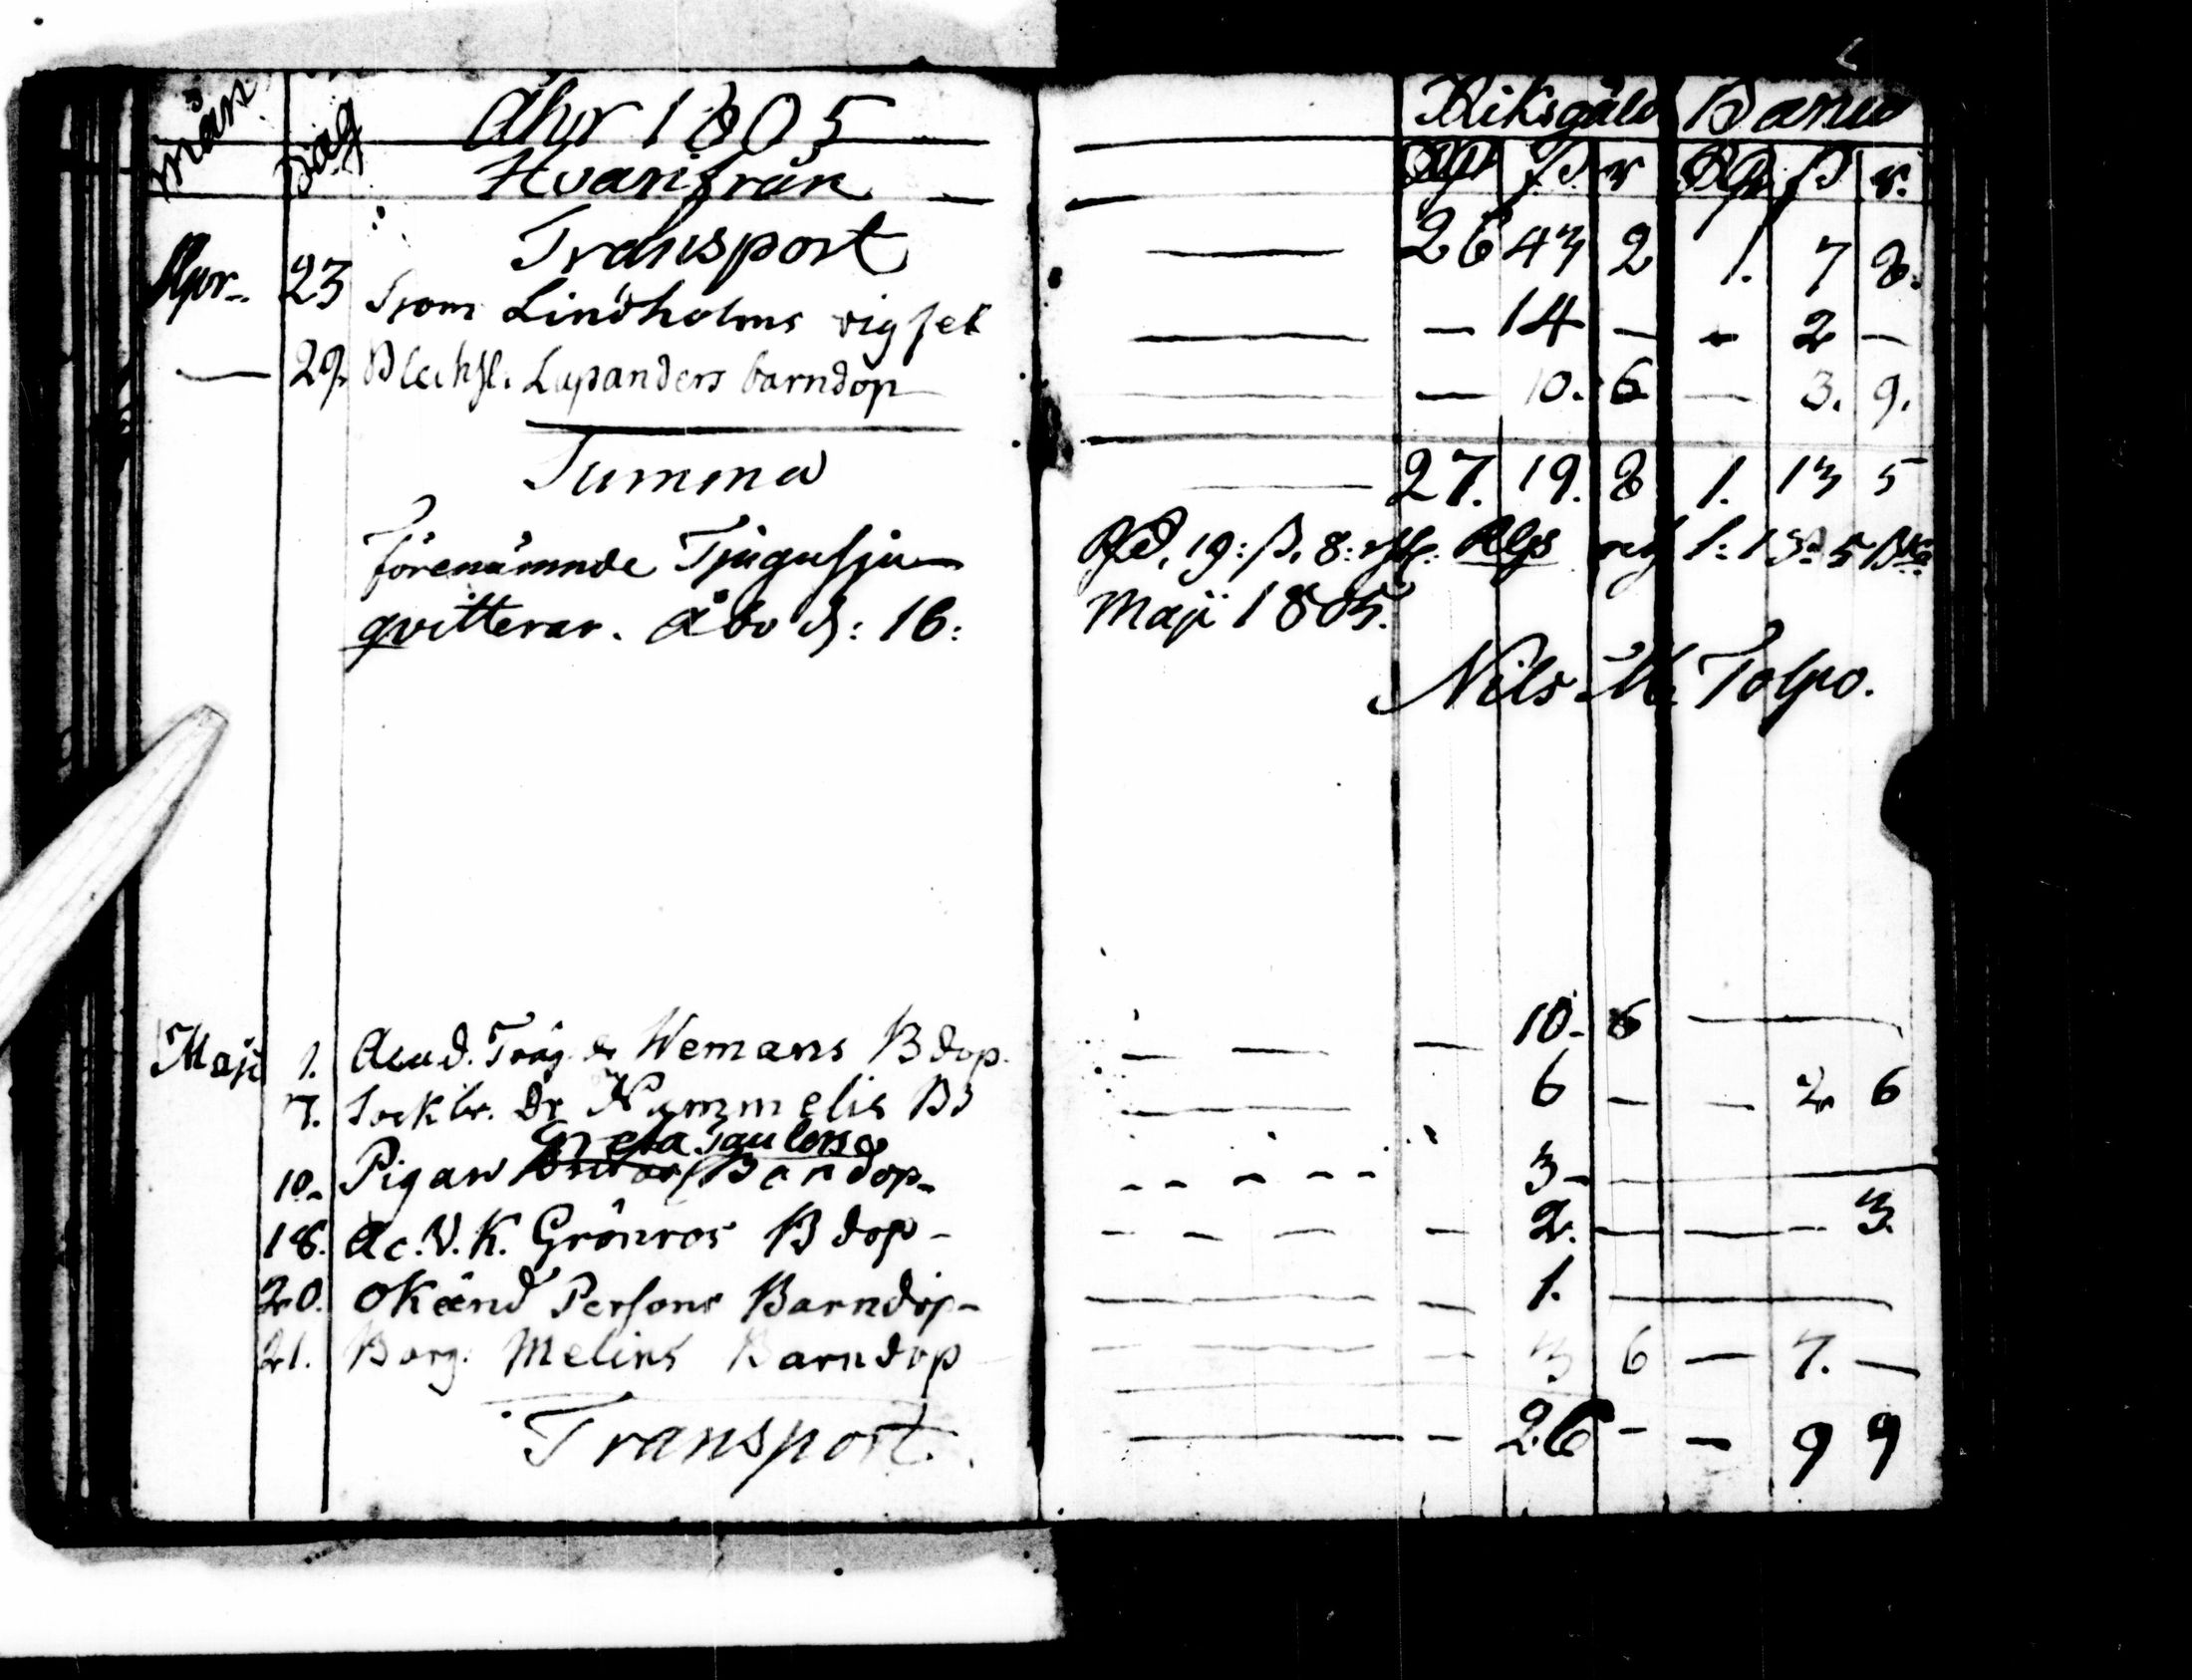 mån Dag Åhr 1805 Riksgäld Banco
Hvarifrån Rd ß r Rd ß r.
Transport 26 43 2 1. 7 8.
Apr. 23 Skom Lindholms vigsel — 14 — - 2 —
— 29. Blecksl. Lupanders barndop — 10. 6 — 3. 9.
Summa 27. 19. 8 1. 13 5
förenämnde Tjugusju Rd, 19: ß, 8: rst: Rlgs och 1: 13: 5 Bco
qvitterar. Åbo d: 16: Maji 1805.
Nils M. Tolpo.
Maji 1. Acad. Träg. Wemans B dop. — 10- 6 —
7. Sockbr. Dr Nummelis Bd 6 — — 2 6
Greta
10. Pigan Barndop- 3- —
18. Ac. V. K. Grönros B dop - — 2. — — — 3.
20. Okänd Persons Barndop- — 1. —
21. Borg. Melins Barndop — 3 6 — 7. —
Transport. — 26 - — 9 9